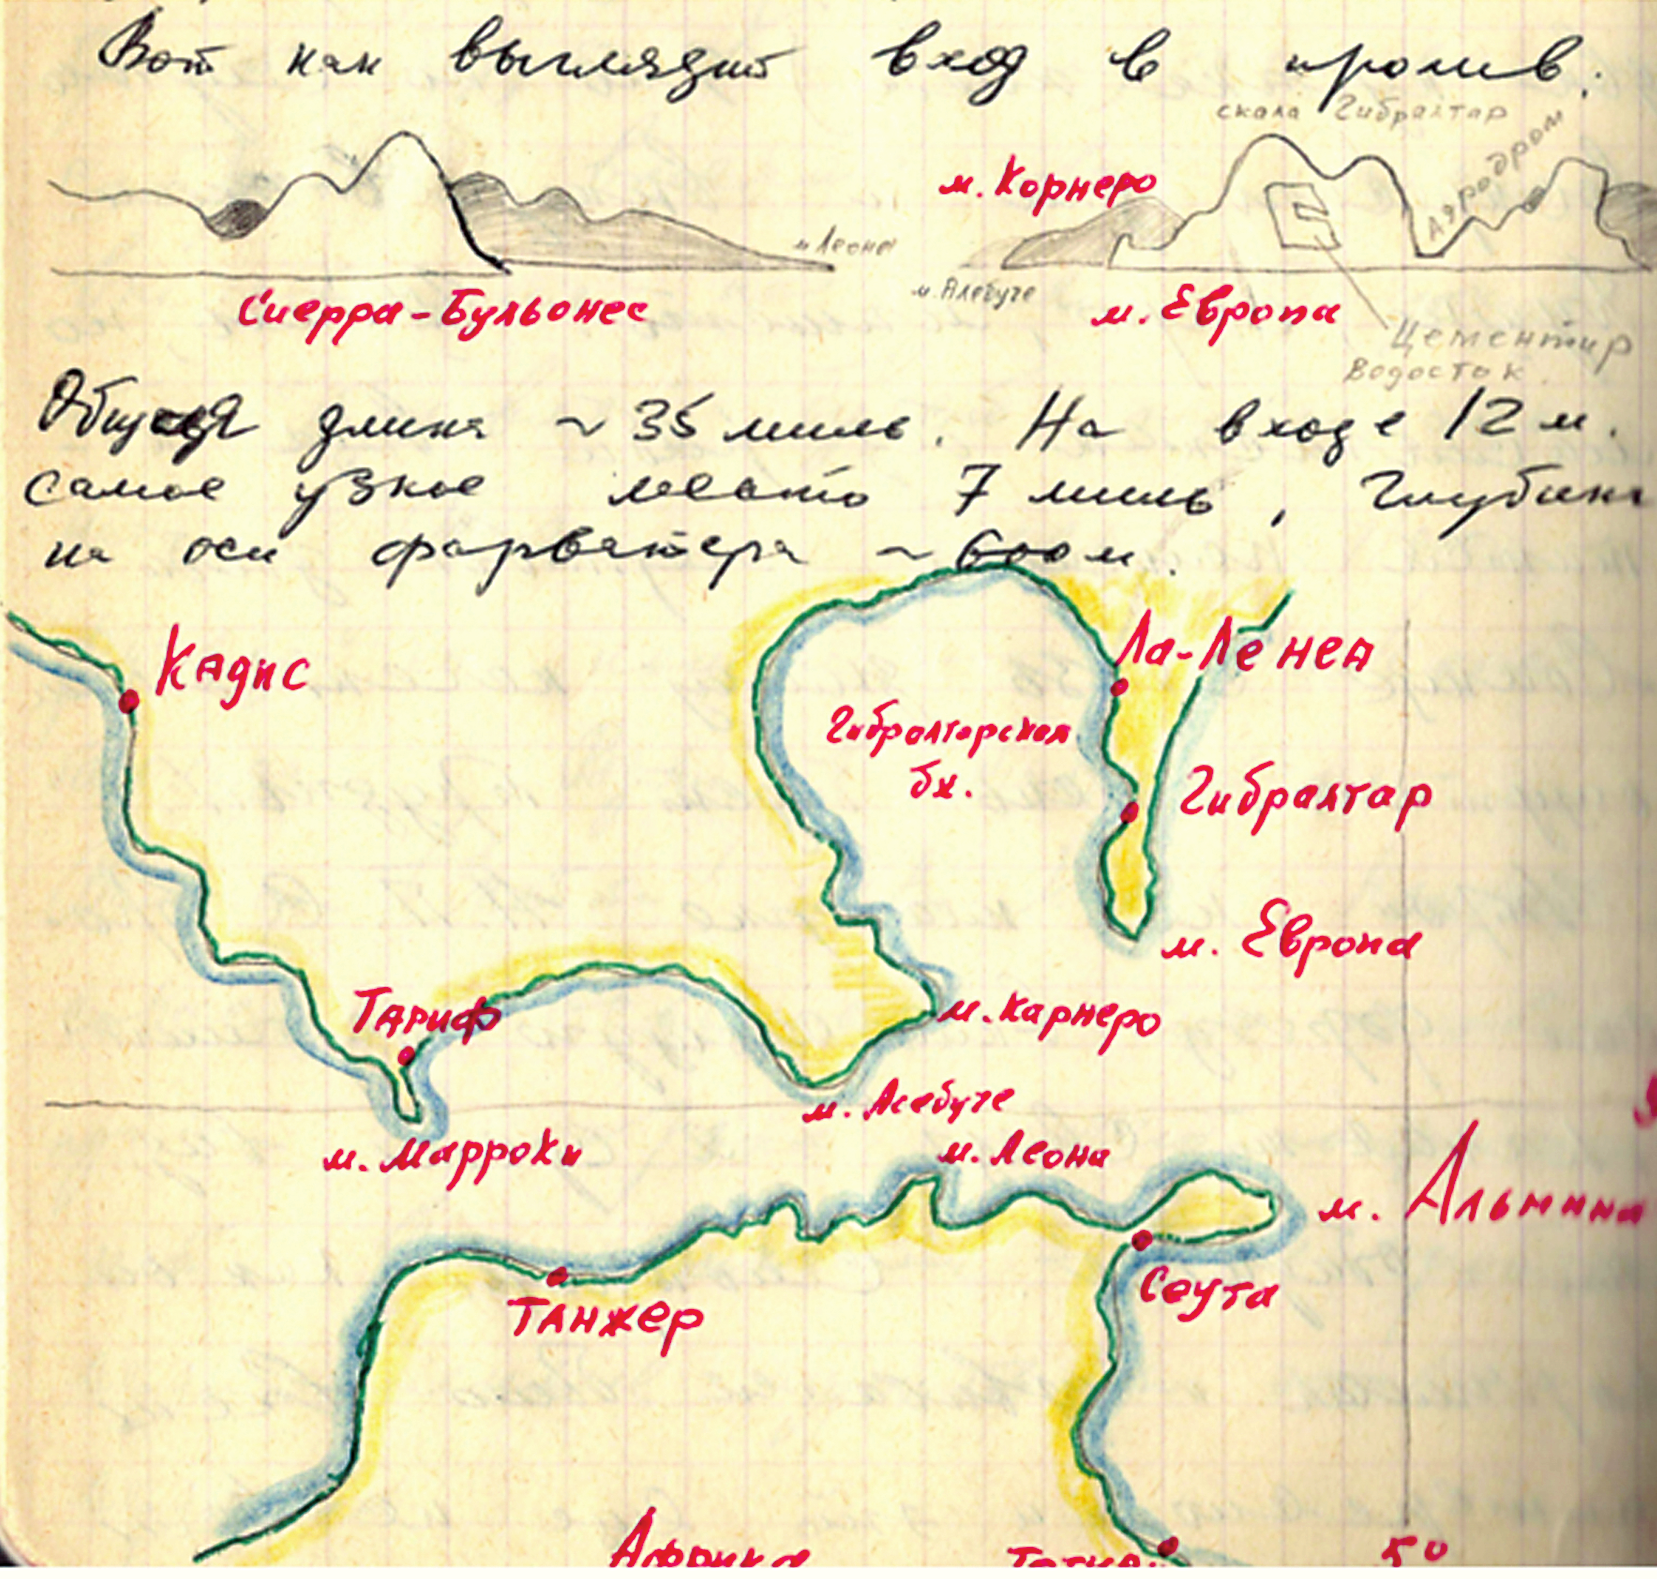 Вот как выглядит вход в пролив.
скала Гибралтар
Аэродром
м. Корнеро
м Леона
м. Алебуче
Сиерра-Бульонес
м. Европа
Цементир
Водосток.
Общая длина ~ 35 миль. На входе 12 м.
самое узкое место 7 миль, Глубина
на оси фарватера ~ 600 м.
Кадис
Ла-Ленеа
Гибралтарская
бх.
Гибралтар
м. Европа
Тариф
м. Карнеро
м. Асебуче
м. Маррокки
м. Леона
м. Альмина
Сеута
Танжер
Африка
5°